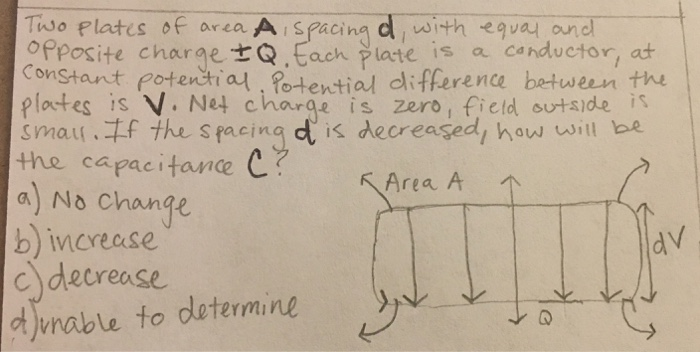 Two plates of area A, spacing d, with equal and
opposite charge ±Q. Each plate is a conductor, at
constant potential. Potential difference between the
plates is V. Net charge is zero, field outside is
small. If the spacing d is decreased, how will be
the capacitance C?
a) No change
b) increase
c) decrease
d) unable to determine
Area A
dV
Q